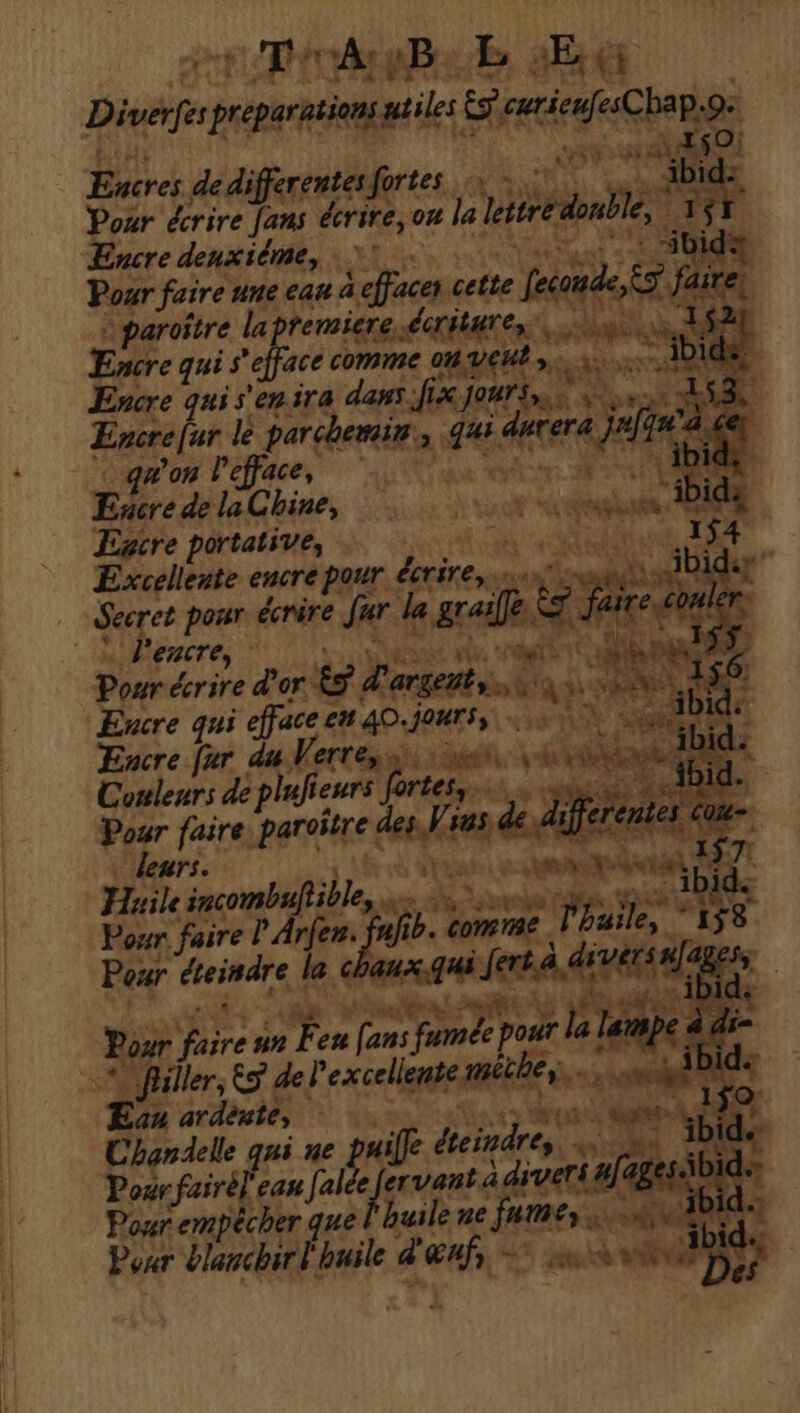 TABLE
Diverſes preparations utiles & curieuſesChap.9.
150
Encres de differentes ſortes ibid.
Pour écrire ſans écrire, ou la lettre double, 151
Encre deuxiéme, ibid.
Pour faire une eau à effacer cette ſeconde, & faire
paroître la premiere écriture, 152
Encre qui s'efface comme on veut, ibid.
Encre qui s'en ira dans ſix jours, 153.
Encre ſur le parchemin, qui durera juſqu'à ce
qu'on l'efface, ibid.
Encre de la Chine, ibid.
Encre portative, 154
Excellente encre pour écrire, ibid.
Secret pour écrire ſur la graiſſe & faire couler
l'encre, 155
Pour écrire d'or & d'argent, 156
Encre qui efface en 40.jours, ibid.
Encre ſur du Verre, ibid.
Couleurs de pluſieurs ſortes, ibid.
Pour faire paroître des Vins de differentes cou-
leurs. 157
Huile incombuſtible, ibid.
Pour faire l'Arſen. fuſib. comme l'huile, 158
Pour éteindre la chaux qui ſert à divers uſages,
ibid.
Pour faire un Feu ſans fumée pour la lampe à di-
ſtiller, & de l'excellente mêche, ibid.
Eau ardente, 159
Chandelle qui ne puiſſe éteindre, ibid.
Pour fairel'eau ſalée ſervant à divers uſages.ibid.
Pour empêcher que l'huile ne fume, ibid.
Pour blanchir l'huile d'œuf, ibid.
Des